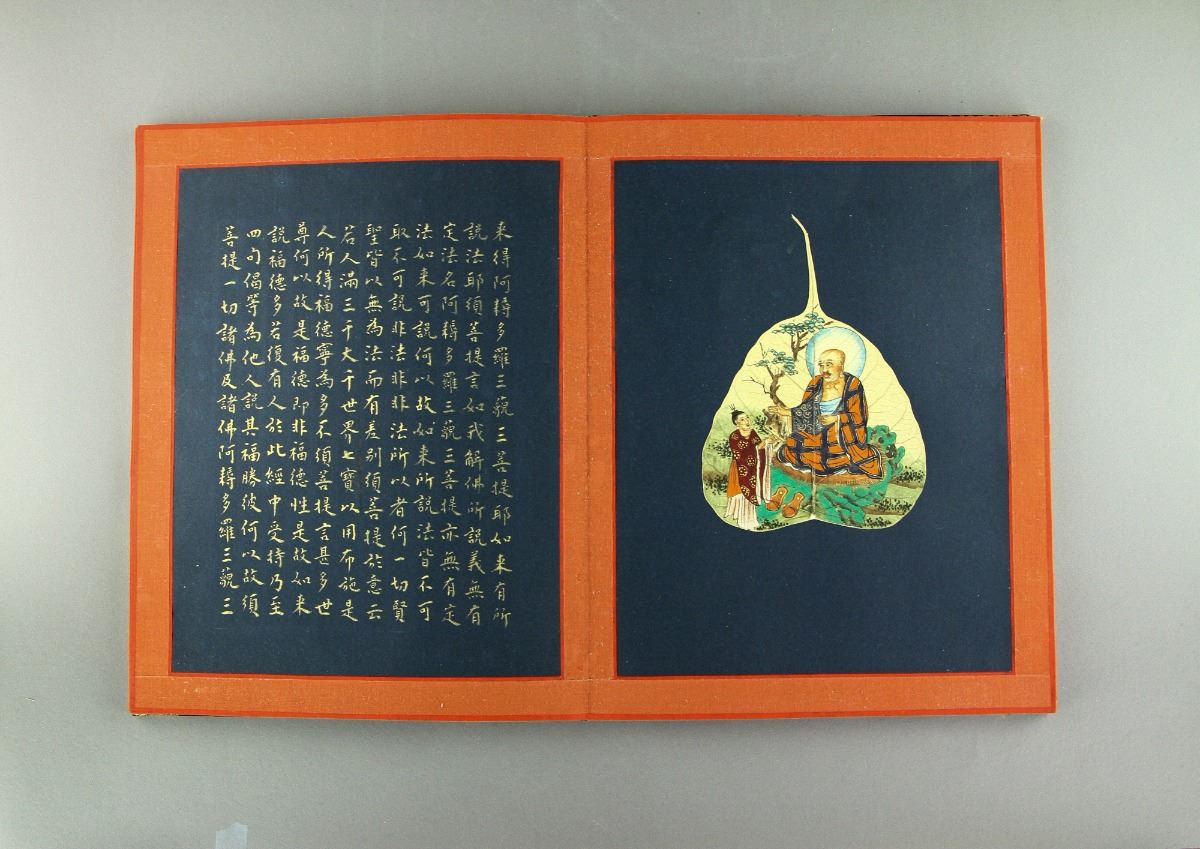 来得阿耨多羅三藐三菩提耶如来有所
説法耶須菩提言如我解佛所説義無有
定法名阿耨多羅三藐三菩提亦無有定
法如来可説何以故如来所説法皆不可
取不可説非法非非法所以者何一切賢
聖皆以無為法而有差别須菩提於意云
若人滿三千大千世界七寶以用布施是
人所得福德寧為多不須菩提言甚多世
尊何以故是福德即非福德性是故如来
説福德多若復有人於此經中受持乃至
四句偈等為他人説其福勝彼何以故須
菩提一切諸佛及諸佛阿耨多羅三藐三